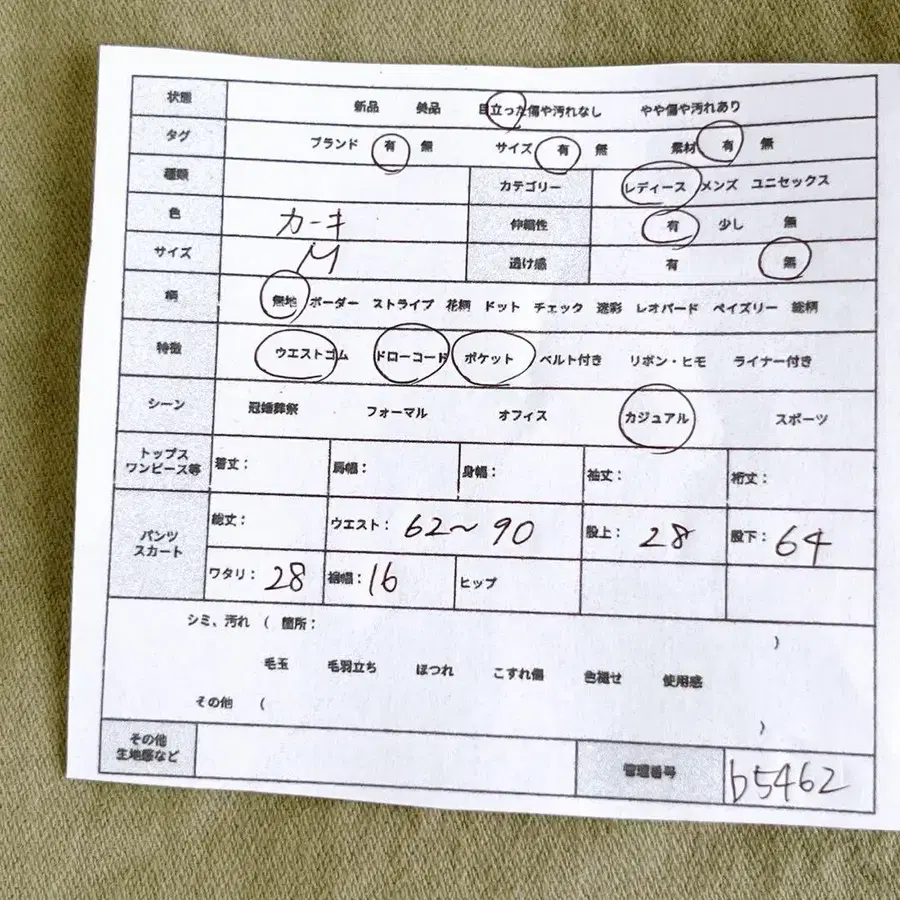 状態 新品 美品 目立った傷や汚れなし やや傷や汚れあり
タグ ブランド 有 無 サイズ 有 無 素材 有 無
種類 カテゴリー レディース メンズ ユニセックス
色 カーキ 伸縮性 有 少し 無
サイズ M 透け感 有 無
柄 無地 ボーダー ストライプ 花柄 ドット チェック 迷彩 レオパード ペイズリー 総柄
特徴 ウエストゴム ドローコード ポケット ベルト付き リボン・ヒモ ライナー付き
シーン 冠婚葬祭 フォーマル オフィス カジュアル スポーツ
トップス
ワンピース等 着丈: 肩幅: 身幅: 袖丈: 裄丈:
パンツ
スカート 総丈: ウエスト: 62〜90 股上: 28 股下: 64
ワタリ: 28 裾幅: 16 ヒップ
シミ、汚れ ( 箇所: )
毛玉 毛羽立ち ほつれ こすれ傷 色褪せ 使用感
その他 ( )
その他
生地感など 管理番号 b5462